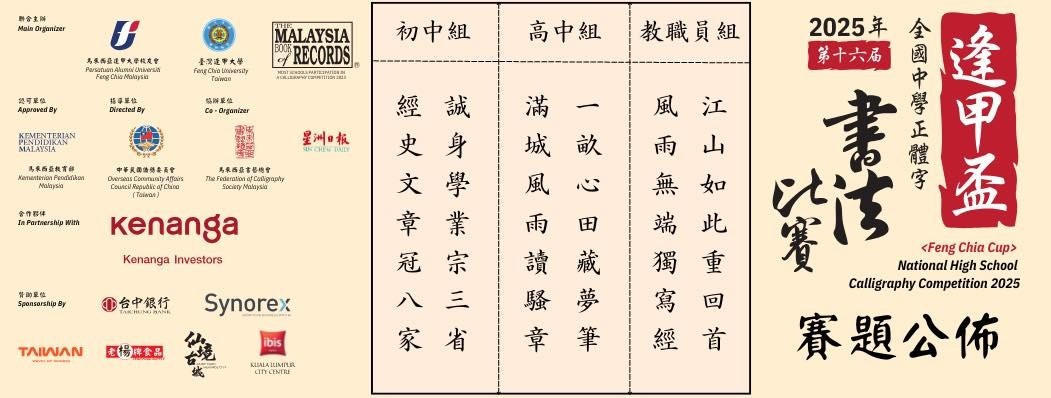 聯合主辦
Main Organizer
馬來西亞逢甲大學校友會
Persatuan Alumni Universiti
Feng Chia Malaysia
臺灣逢甲大學
Feng Chia University
Taiwan
THE
MALAYSIA
BOOK of
RECORDS
MOST SCHOOLS PARTICIPATION IN
A CALLIGRAPHY COMPETITION 2023
認可單位
Approved By
指導單位
Directed By
協辦單位
Co - Organizer
KEMENTERIAN
PENDIDIKAN
MALAYSIA
星洲日报
SIN CHEW DAILY
馬來西亞教育部
Kementerian Pendidikan
Malaysia
中華民國僑務委員會
Overseas Community Affairs
Council Republic of China
( Taiwan )
馬來西亞書藝總會
The Federation of Calligraphy
Society Malaysia
合作夥伴
In Partnership With
kenanga
Kenanga Investors
贊助單位
Sponsorship By
台中銀行
TAICHUNG BANK
Synorex
TAIWAN
老楊牌食品
仙境
古城
ibis
KUALA LUMPUR
CITY CENTRE
初中組
誠身學業宗三省
經史文章冠八家
高中組
一畝心田藏夢筆
滿城風雨讀騷章
教職員組
江山如此重回首
風雨無端獨寫經
2025年
第十六届
全國中學正體字
逢甲盃
書法比賽
<Feng Chia Cup>
National High School
Calligraphy Competition 2025
賽題公佈